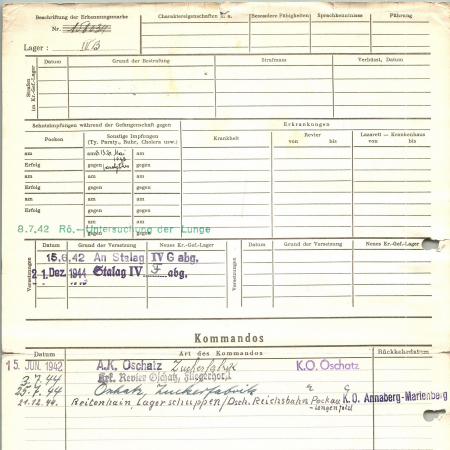 Beschriftung der Erkennungsmarke
Nr.
Lager: IV B
Charaktereigenschaften u. a.
Besondere Fähigkeiten
Sprachkenntnisse
Führung
Strafen im Kr.-Gef.-Lager
Datum
Grund der Bestrafung
Strafmass
Verbüsst, Datum
Schutzimpfungen während der Gefangenschaft gegen
Erkrankungen
Pocken
Sonstige Impfungen
(Ty. Paraty., Ruhr, Cholera usw.)
Krankheit
Revier
von bis
Lazarett – Krankenhaus
von bis
am
am
Erfolg
gegen
am
am
Erfolg
gegen
am
am
Erfolg
gegen
am
am
gegen
8.7.42 Rö.–Untersuchung der Lunge
Versetzungen
Datum
Grund der Versetzung
Neues Kr.-Gef.-Lager
Versetzungen
Datum
Grund der Versetzung
Neues Kr.-Gef.-Lager
15.6.42 An Stalag IV G abg.
21. Dez. 1944 Stalag IV F abg.
Kommandos
Datum
Art des Kommandos
Rückkehrdatum
15. JUN. 1942 A.K. Oschatz Zuckerfabrik K.O. Oschatz
3.7.44 Revier Oschatz, Fliegerhorst
25.7.44 Oschatz, Zuckerfabrik
21.12.44. Reitenhain, Lagerschuppen/Dsch. Reichsbahn Pockau
-Lengefeld
K.O. Annaberg-Marienberg